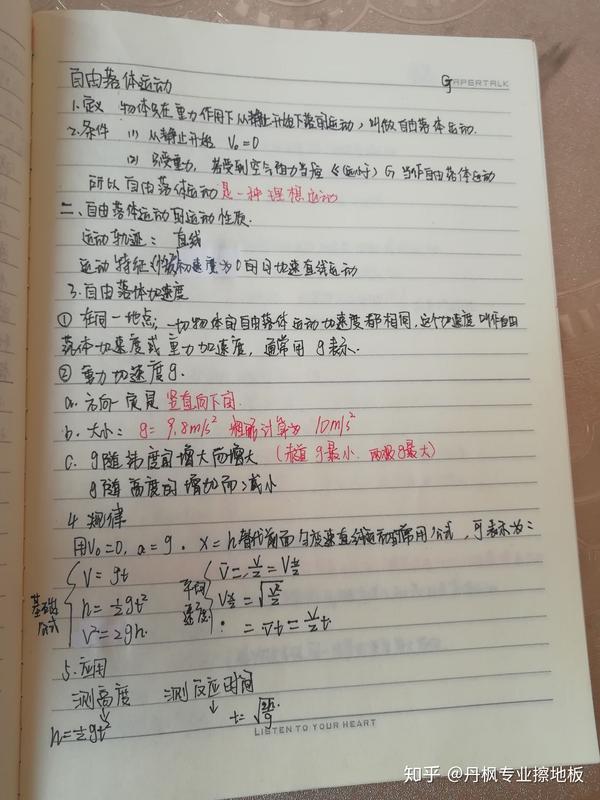 PAPERTALK
自由落体运动
1.定义 物体只在重力作用下从静止开始下落的运动，叫做自由落体运动.
2.条件 (1) 从静止开始 V₀=0
(2) 只受重力，若受到空气阻力当 f≪(远小于) G，当作自由落体运动
所以自由落体运动是一种理想运动
二、自由落体运动的运动性质.
运动轨迹： 直线
运动特征 初速度为0的匀加速直线运动
3.自由落体加速度
① 在同一地点；一切物体的自由落体运动加速度都相同，这个加速度叫作自由
落体加速度或重力加速度，通常用g表示.
② 重力加速度g.
a. 方向一定是竖直向下的.
b. 大小： g=9.8m/s² 粗略计算为 10m/s²
c. g随纬度的增大而增大 （赤道g最小、两极g最大）
g随高度的增加而减小
4 规律
用V₀=0，a=g，x=h替代前面匀变速直线运动的常用公式，可表示为：
基础公式 V=gt
h=½gt²
V²=2gh.
平均速度 V̄=V/2=Vt/2
Vx/2=√(V²/2)
= V̄t=V/2 t.
5.应用
测高度 测反应时间
h=½gt² t=√(2h/g).
LISTEN TO YOUR HEART
知乎 @丹枫专业擦地板